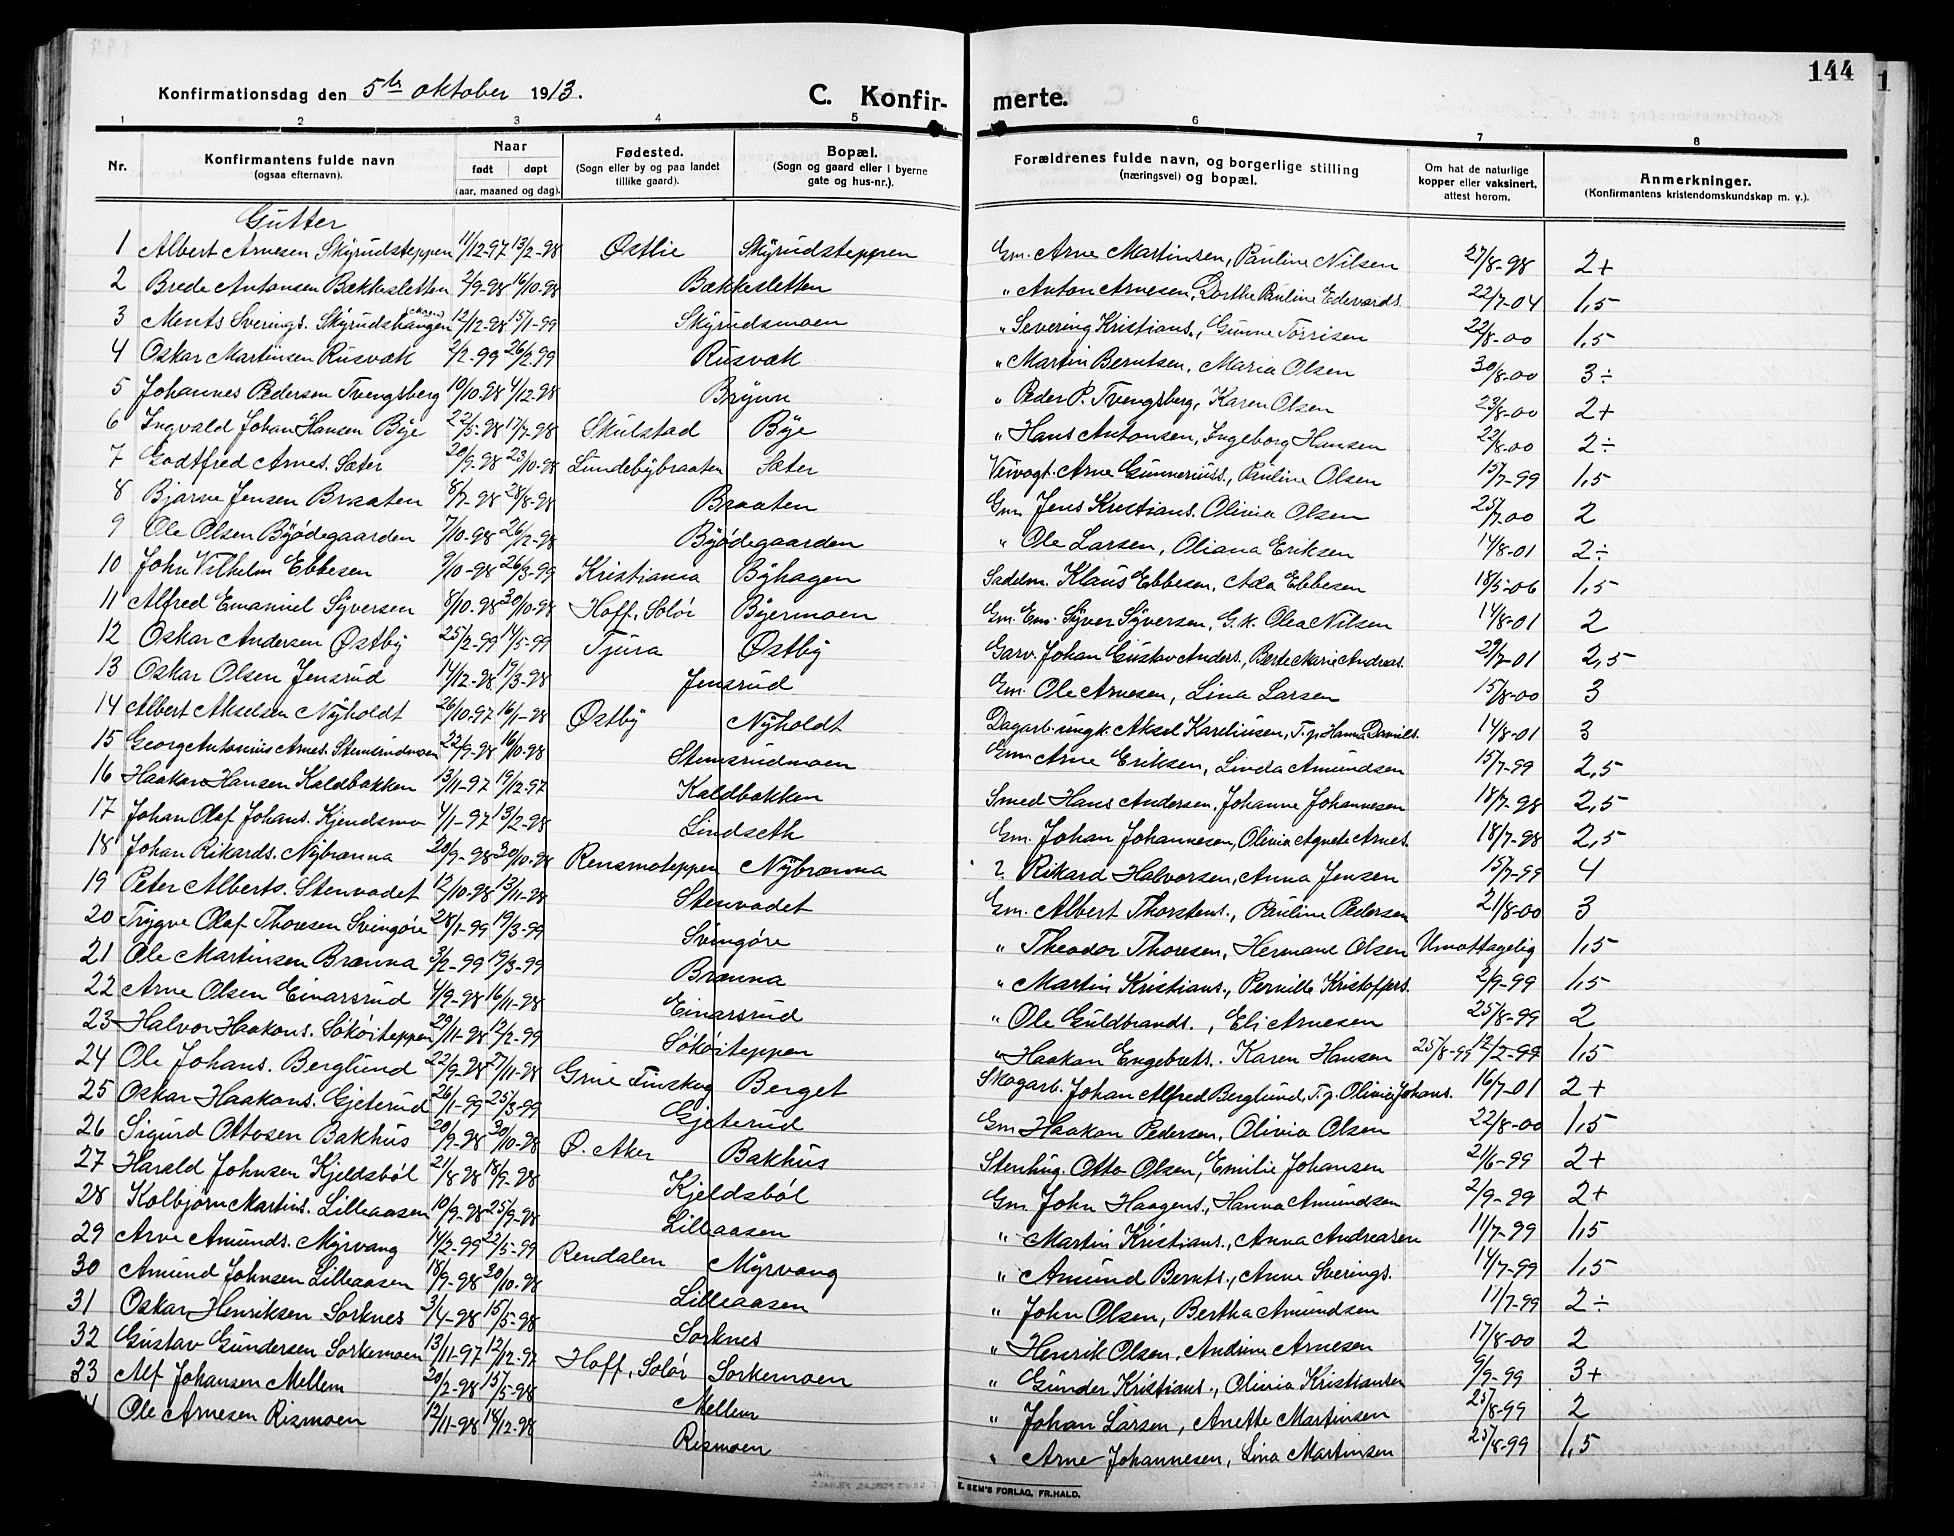 144
Konfirmationsdag den 5te oktober 1913.
C. Konfirmerte.
1 2 3 4 5 6 7 8
Nr. Konfirmantens fulde navn (ogsaa efternavn). Naar født døpt (aar, maaned og dag). Fødested. (Sogn eller by og paa landet tillike gaard). Bopæl. (Sogn og gaard eller i byerne gate og hus-nr.). Forældrenes fulde navn, og borgerlige stilling (næringsvei) og bopæl. Om hat de naturlige kopper eller vaksinert, attest herom. Anmerkninger. (Konfirmantens kristendomskundskap m. v.).
Gutter
1 Albert Arnesen Skyrudsteppen 11/12-97 13/2-98 Østlie Skyrudsteppen Gm. Arne Martinsen, Pauline Nilsen 27/8-98 2+
2 Brede Antonsen Bækkesletten 2/9-98 16/10-98 Bækkesletten " Anton Arnesen, Dorthe Pauline Edevards. 22/7-04 1,5
3 Ments Sverings. Skyrudshangen 12/12-98 15/1-99 Skyrudsmoen " Severing Kristians., Gunne Torrisen 22/8-00 1,5
4 Oskar Martinsen Rusvæk 2/2-99 26/2-99 Rusvæk " Martin Berntsen, Maria Olsen 30/8-00 3÷
5 Johannes Pedersen Tvengsberg 10/10-98 4/12-98 Brynn " Peder P. Tvengsberg, Karen Olsen 23/8-00 2+
6 Ingvald Johan Hansen Bye 22/5-98 17/7-98 Skulstad Bye " Hans Antonsen, Ingeborg Hansen 22/8-00 2÷
7 Godtfred Arnes. Sæter 20/9-98 23/10-98 Lundebybraaten Sæter Veivogt. Arne Gunneriuss., Pauline Olsen 15/7-99 1,5
8 Bjarne Jensen Braaten 8/7-98 28/8-98 Braaten Gm. Jens Kristians. Olivia Olsen 25/7-00 2
9 Ole Olsen Byødegaarden 7/10-98 26/12-98 Byødegaarden " Ole Larsen, Oliana Eriksen 14/8-01 2÷
10 John Vilhelm Ebbesen 9/10-98 26/3-99 Kristiania Byhagen Sadelm. Klaus Ebbesen, Ebbesen 18/5-06 1,5
11 Alfred Emanuel Syversen 8/10-98 30/10-98 Hoff, Solør Byermoen Gm. Em. Syver Syversen, G.k. Olea Nilsen 14/8-01 2
12 Oskar Andersen Østby 25/2-99 14/5-99 Tjura Østby Garv. Johan Gustav Anders., Berte Marie Andreas. 29/7-01 2,5
13 Oskar Olsen Jensrud 14/12-98 17/3-98 Jensrud Gm. Ole Arnesen, Lina Larsen 15/8-00 3
14 Albert Akselsen Nyholdt 26/10-97 16/1-98 Østby Nyholdt Dagarb. ungk. Aksel Kareliusen, T.p. Hanna Daniels. 14/8-01 3
15 Georg Antonius Arnes. Stemsrudmoen 22/9-98 16/10-98 Stemsrudmoen Gm Arne Eriksen, Linda Amundsen 15/7-99 2,5
16 Haakon Hansen Kaldbakken 13/11-97 19/12-97 Kaldbakken Smed Hans Andersen, Johanne Johannesen 18/7-98 2,5
17 Johan Olaf Johans. Kjendsmo 4/1-97 13/2-98 Lindseth Gm. Johan Johannesen, Olivia Agnete Arnes. 18/7-98 2,5
18 Johan Rikards. Nybrænna 20/9-98 30/10-98 Rensmoteppen Nybrænna ? Rikard Halvorsen, Anna Jensen 15/7-99 4
19 Peter Alberts. Stenvadet 12/10-98 13/11-98 Stenvadet Gm. Albert Thorstens., Pauline Pedersen 21/8-00 3
20 Trygve Olaf Thoresen Svingøre 28/1-99 19/3-99 Svingøre " Theodor Thoresen, Hermane Olsen Umottagelig 1,5
21 Ole Martinsen Brænna 3/2-99 19/3-99 Brænna " Martin Kristians., Pernille Kristoffers. 2/9-99 1,5
22 Arne Olsen Einarsrud 4/9-98 16/11-98 Einarsrud " Ole Guldbrands., Eli Arnesen 25/8-99 2
23 Halvor Haakons. Søkøiteppen 29/11-98 12/2-99 Søkøiteppen " Haakon Engebrets. Karen Hansen 25/8-99 12/2-99 1,5
24 Ole Johans. Berglund 22/9-98 27/11-98 Grue Finskog Berget Skogarb. Johan Alfred Berglund, T.p. Olivia Johans. 16/7-01 2+
25 Oskar Haakons. Gjeterud 26/1-99 25/3-99 Gjeterud Gm Haakon Pedersen, Olivia Olsen 22/8-00 1,5
26 Sigurd Ottosen Bakhus 20/9-98 30/10-98 Ø. Aker Bakhus Stenhug. Otto Olsen, Emilie Johansen 21/6-99 2+
27 Harald Johnsen Kjeldsbøl 21/8-98 18/9-98 Kjeldsbøl Gm. John Haagens., Hanna Amundsen 2/9-99 2+
28 Kolbjørn Martins. Lilleaasen 10/9-98 25/9-98 Lilleaasen " Martin Kristians., Anna Andreasen 11/7-99 1,5
29 Arve Amunds. Myrvang 14/2-99 22/5-99 Rendalen Myrvang " Amund Bernts., Anne Sverings. 14/7-99 1,5
30 Amund Johnsen Lilleaasen 18/9-98 30/10-98 Lilleaasen " John Olsen, Bertha Amundsen 11/7-99 2÷
31 Oskar Henriksen Sorknes 3/4-98 15/5-98 Sorknes " Henrik Olsen, Andrine Arnesen 17/8-00 2
32 Gustav Gundersen Sorkemoen 13/11-97 12/12-97 Hoff, Solør Sorkemoen " Gunder Kristians., Olivia Kristiansen 9/9-99 3+
33 Alf Johansen Mellem 20/2-98 15/5-98 Mellem " Johan Larsen, Anette Martinsen 25/8-99 2
Ole Arnesen Rismoen 12/11-98 14/12-98 Rismoen " Arne Johannesen, Lina Martinsen 25/8-99 1,5
E. SEM'S FORLAG, FR.HALD.